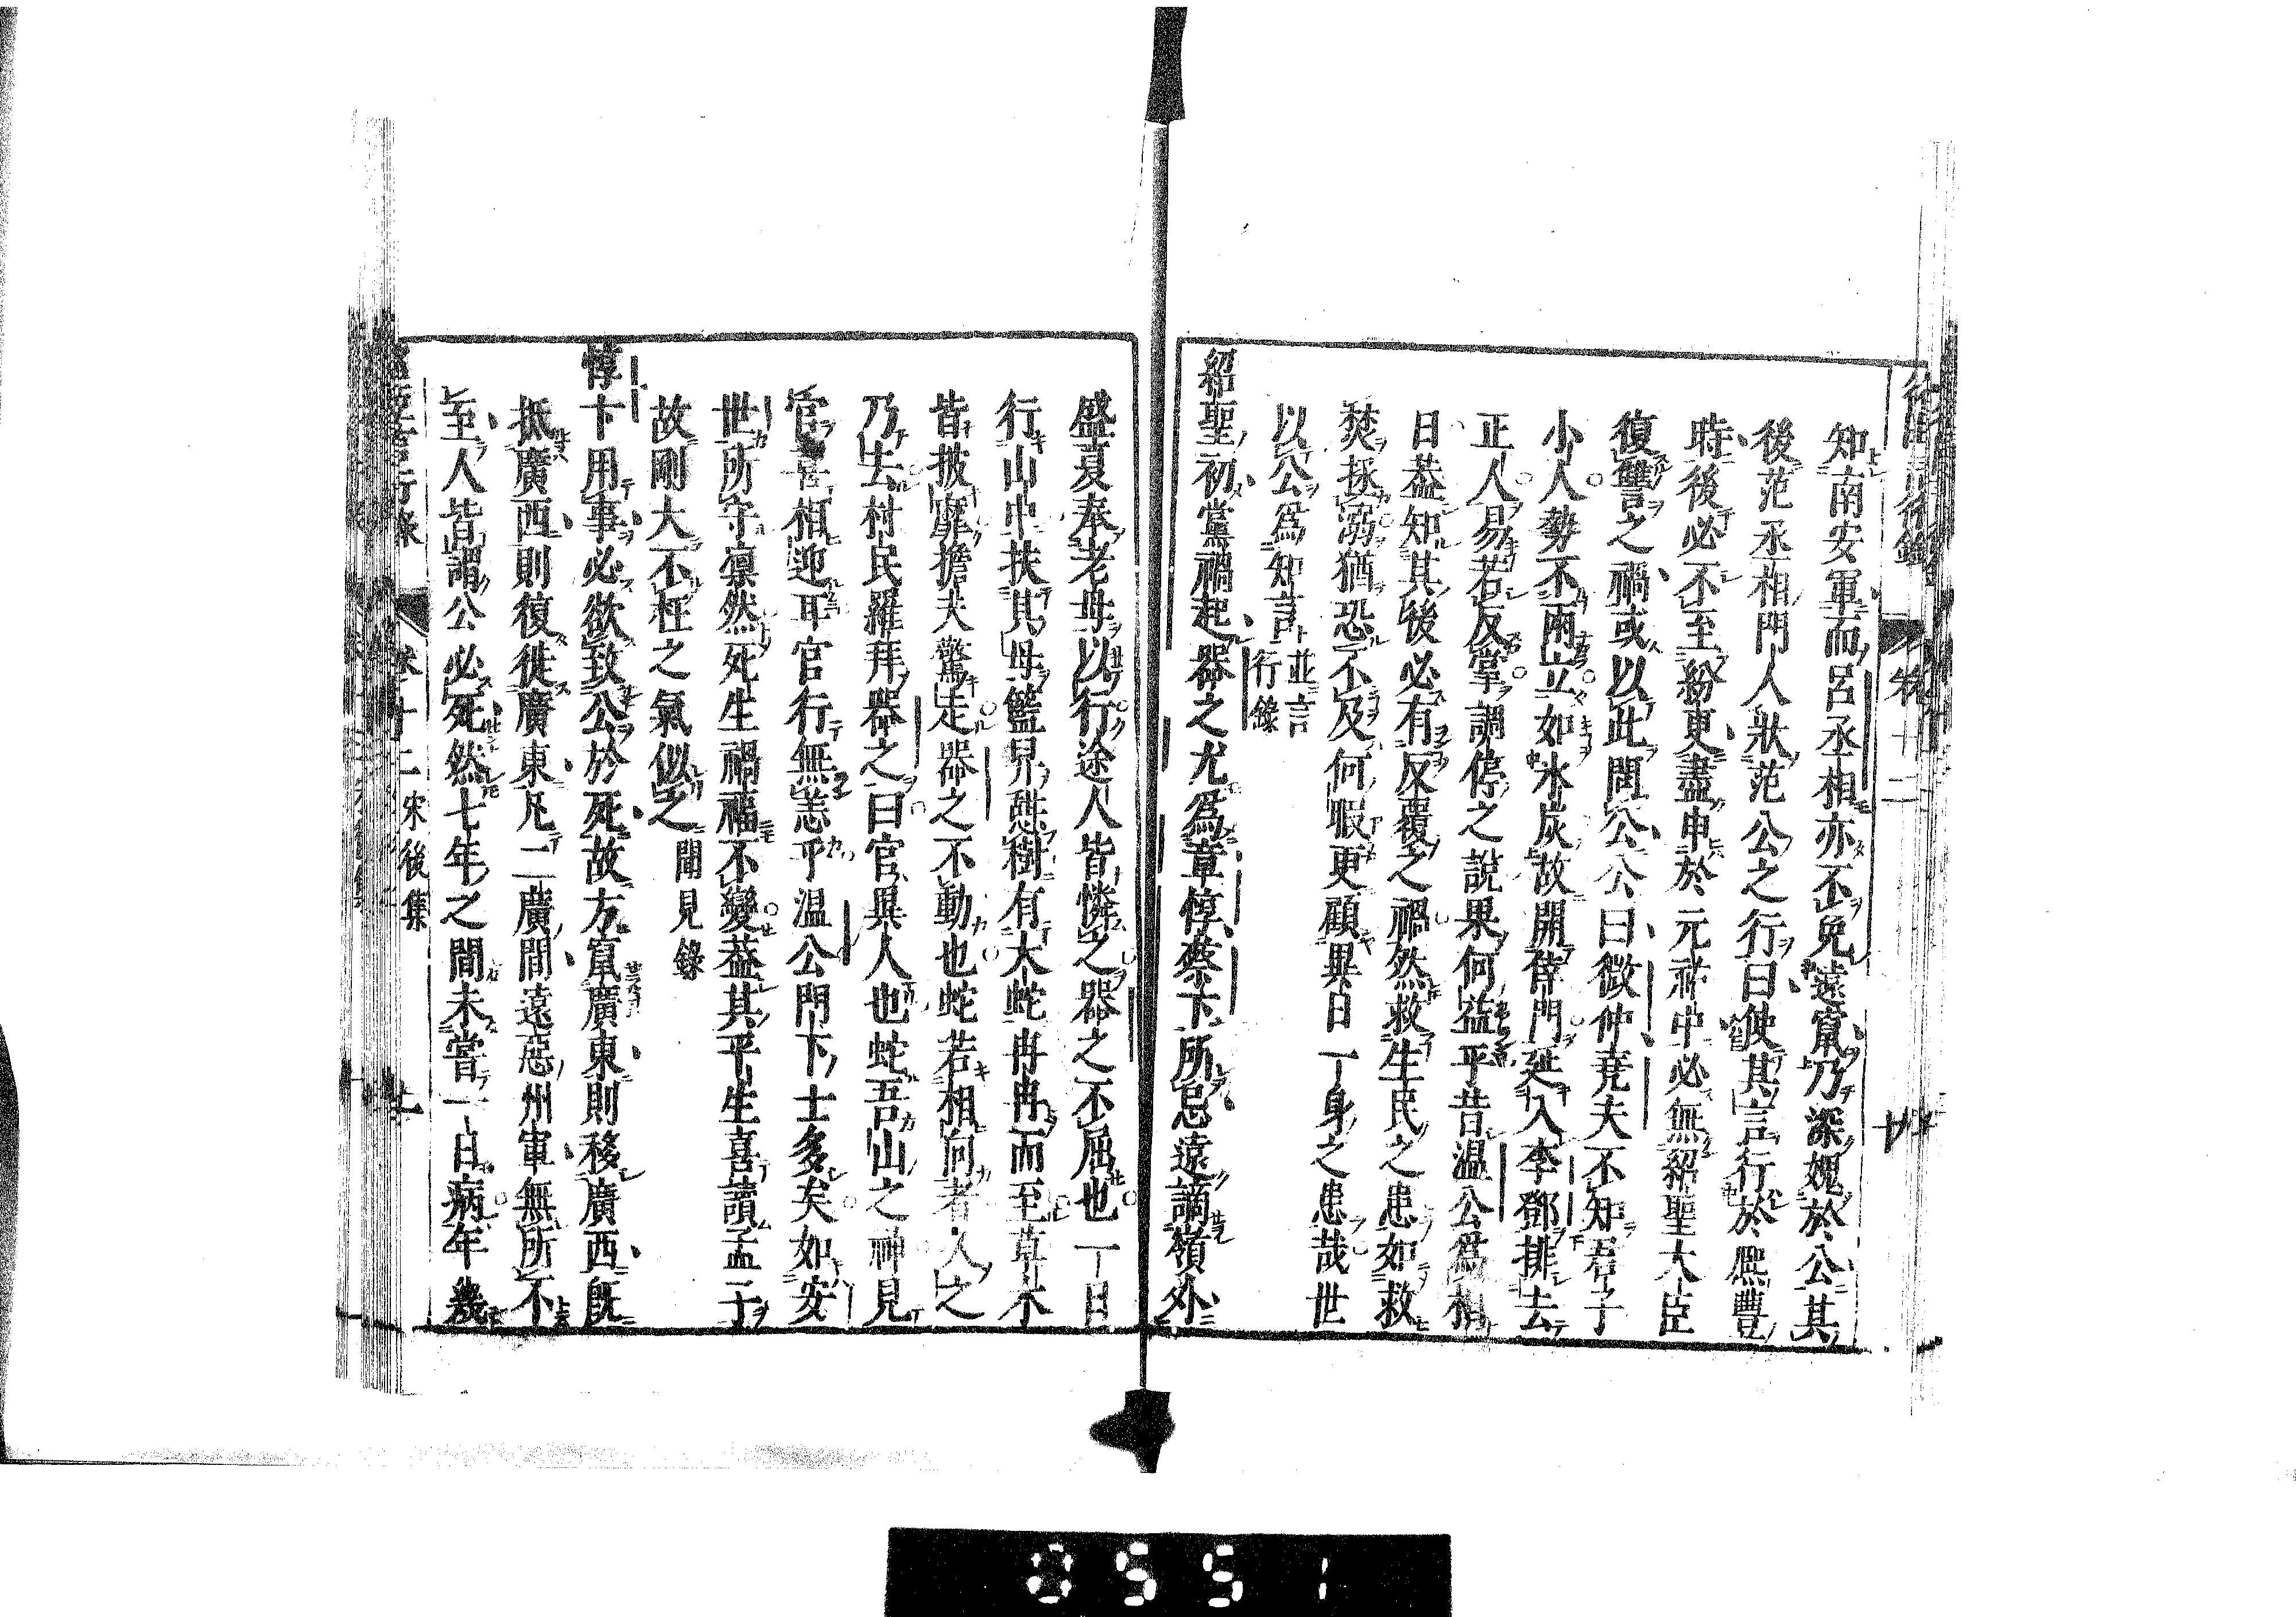 知南安軍而呂丞相亦不免遠竄乃深媿於公其
後范丞相門人狀范公之行曰使其言行於熈豐
時後必不至紛更盡申於元祐中必無紹聖大臣
復讐之禍或以此問公公曰微仲堯夫不知君子
小人勢不兩立如氷炭故開倖門延入李鄧排去
正人易若反掌調停之說果何益乎昔温公爲相
日葢知其後必有反覆之禍然救生民之患如救
焚拯溺猶恐不及何暇更顧異日一身之患哉世
以公爲知言 並言行錄
紹聖初黨禍起器之尤爲章惇蔡卞所忌遠謫嶺外
盛夏奉老母以行途人皆憐之器之不屈也一日
行山中扶其母籃舁憇樹有大蛇冉冉而至草木
皆披靡擔夫驚走器之不動也蛇若相向者人之
乃去村民羅拜器之曰官異人也蛇吾山之神見
官喜相迎耳官行無恙乎温公門下士多矣如安
世所守凛然死生禍福不變葢其平生喜讀孟子
故剛大不枉之氣似之 聞見錄
惇卞用事必欲致公於死故方竄廣東則移廣西旣
抵廣西則復徙廣東凡二廣間遠惡州軍無所不
至人皆謂公必死然七年之間未嘗一日病年幾
卷十二 宋後集
0551